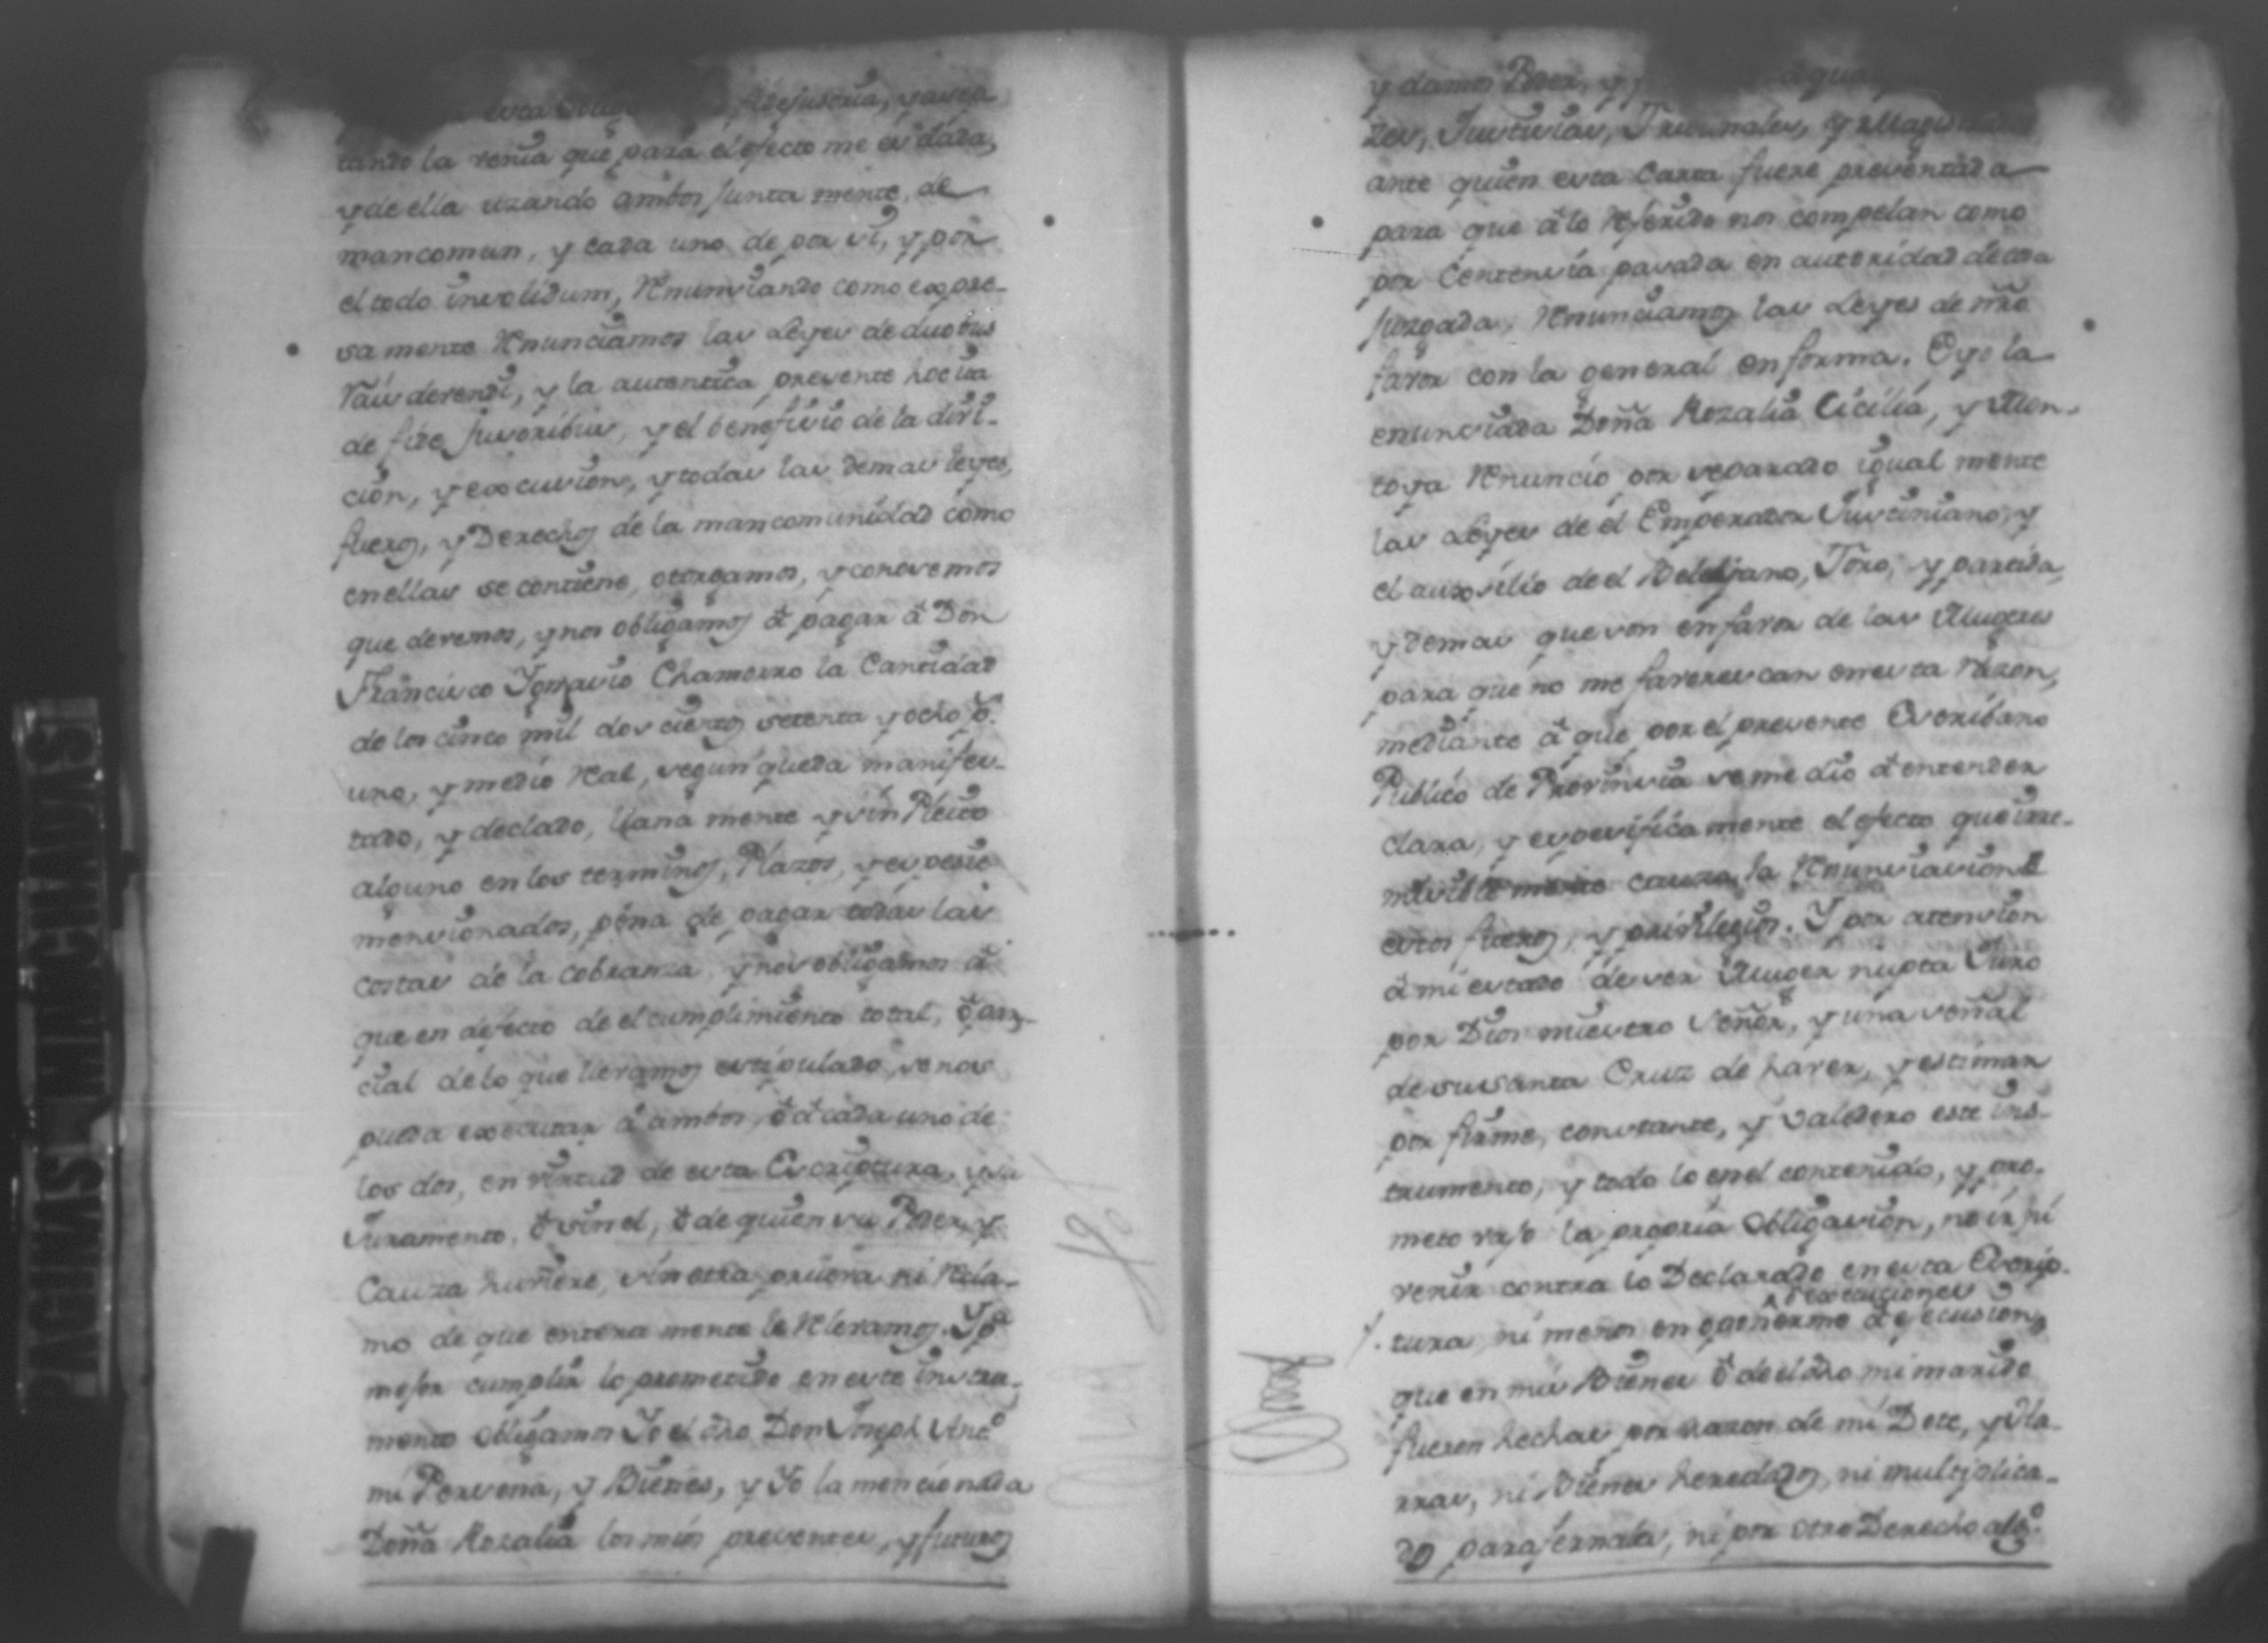 esta fidejusoria, y acep
tando la venia que para el efecto me es dada,
y de ella uzando ambos junta mente, de
mancomun, y cada uno de por si, y por
el todo insolidum, Renunsiando como expre-
sa mente Renunciamos las Leyes de duobus
Raiis devendi, y la autentica presente hocita
de fide jusoribus, y el benefisio de la divi-
cion, y excucion, y todas las demas leyes,
fueros, y Derechos de la mancomunidad como
en ellas se contiene, otorgamos, y conosemos
que devemos, y nos obligamos â pagar â Don
Francisco Ygnasio Chamorro la Cantidad
de los cinco mil dos cientos setenta y ocho p.s
uno, y medio Real, segun queda manifes-
tado, y declado, llana mente y sin Pleito
alguno en los terminos, Plazos, y espesie
mensionados, pena de pagar todas las
costas de la cobranza y nos obligamos â
que en defecto de el cumplimiento total, ô par-
cial de lo que llevamos estipulado, se nos
pueda executar â ambos, ô â cada uno de
los dos, en virtud de esta Escriptura, y su
Juramento, ô sin el, ô de quien su Poder, y
Cauza huviere, sin otra prueva ni Recla-
mo de que entera mente le Relevamos. Y p.a
mejor cumplir lo prometido en este instru-
mento obligamos Yo el dho Don Joseph Ant.o
mi Persona, y Bienes, y Yo la mencionada
Doña Rozalia los mios presentes, y futuros
y damos Poder, y
zes, Justisias, Tribunales, y Magis
ante quien esta Carta fuere presentada
para que â lo Referido nos compelan como
por Centensia pasada en autoridad de cosa
juzgada, Renunciamos las Leyes de nro
favor con la general en forma. E yo la
enunsiada Doña Rozalia Cicilia, y Mon-
toya Renuncio por separado igual mente
las Leyes de el Emperador Justiniano, y
el auxsilio de el Beleyano, Toro, y partida,
y demas que son en favor de las Mugeres
para que no me favorescan en esta Razon,
mediante â que por el presente Escribano
Publico de Provinsia se me dio â entender
clara, y espesifica mente el efecto que irre-
misible mente causa la Renunsiasion de
estos fueros, y privilegios. Y por atension
â mi estado de ser Muger nupta Juro
por Dios nuestro Señor, y una señal
de su santa Cruz de haver, y estimar
por firme, constante, y valedero este ins-
trumento, y todo lo en el contenido, y pro-
meto vajo la propria obligasion, no ir ni
venir contra lo Declarado en esta Escrip-
tura ni menos en oponerme â execuciones
que en mis Bienes ô de el dho mi marido
fueron hechas por razon de mi Dote, y Ha-
rras, ni Bienes heredados, ni multiplica-
dos parafernales, ni por otro Derecho alg.o